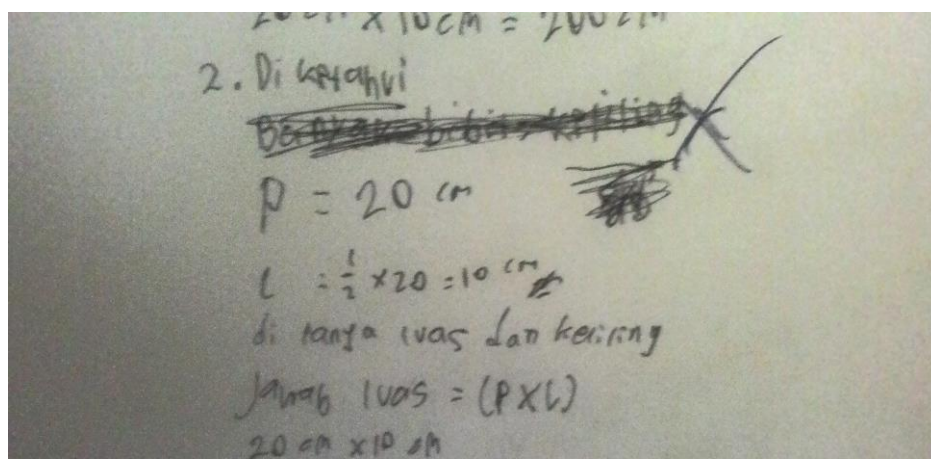 20 cm x 10 cm = 200 cm
2. Diketahui
P = 20 cm
l = 1/2 x 20 = 10 cm
di tanya luas dan keliring
Jawab luas = (P X L)
20 cm x 10 cm